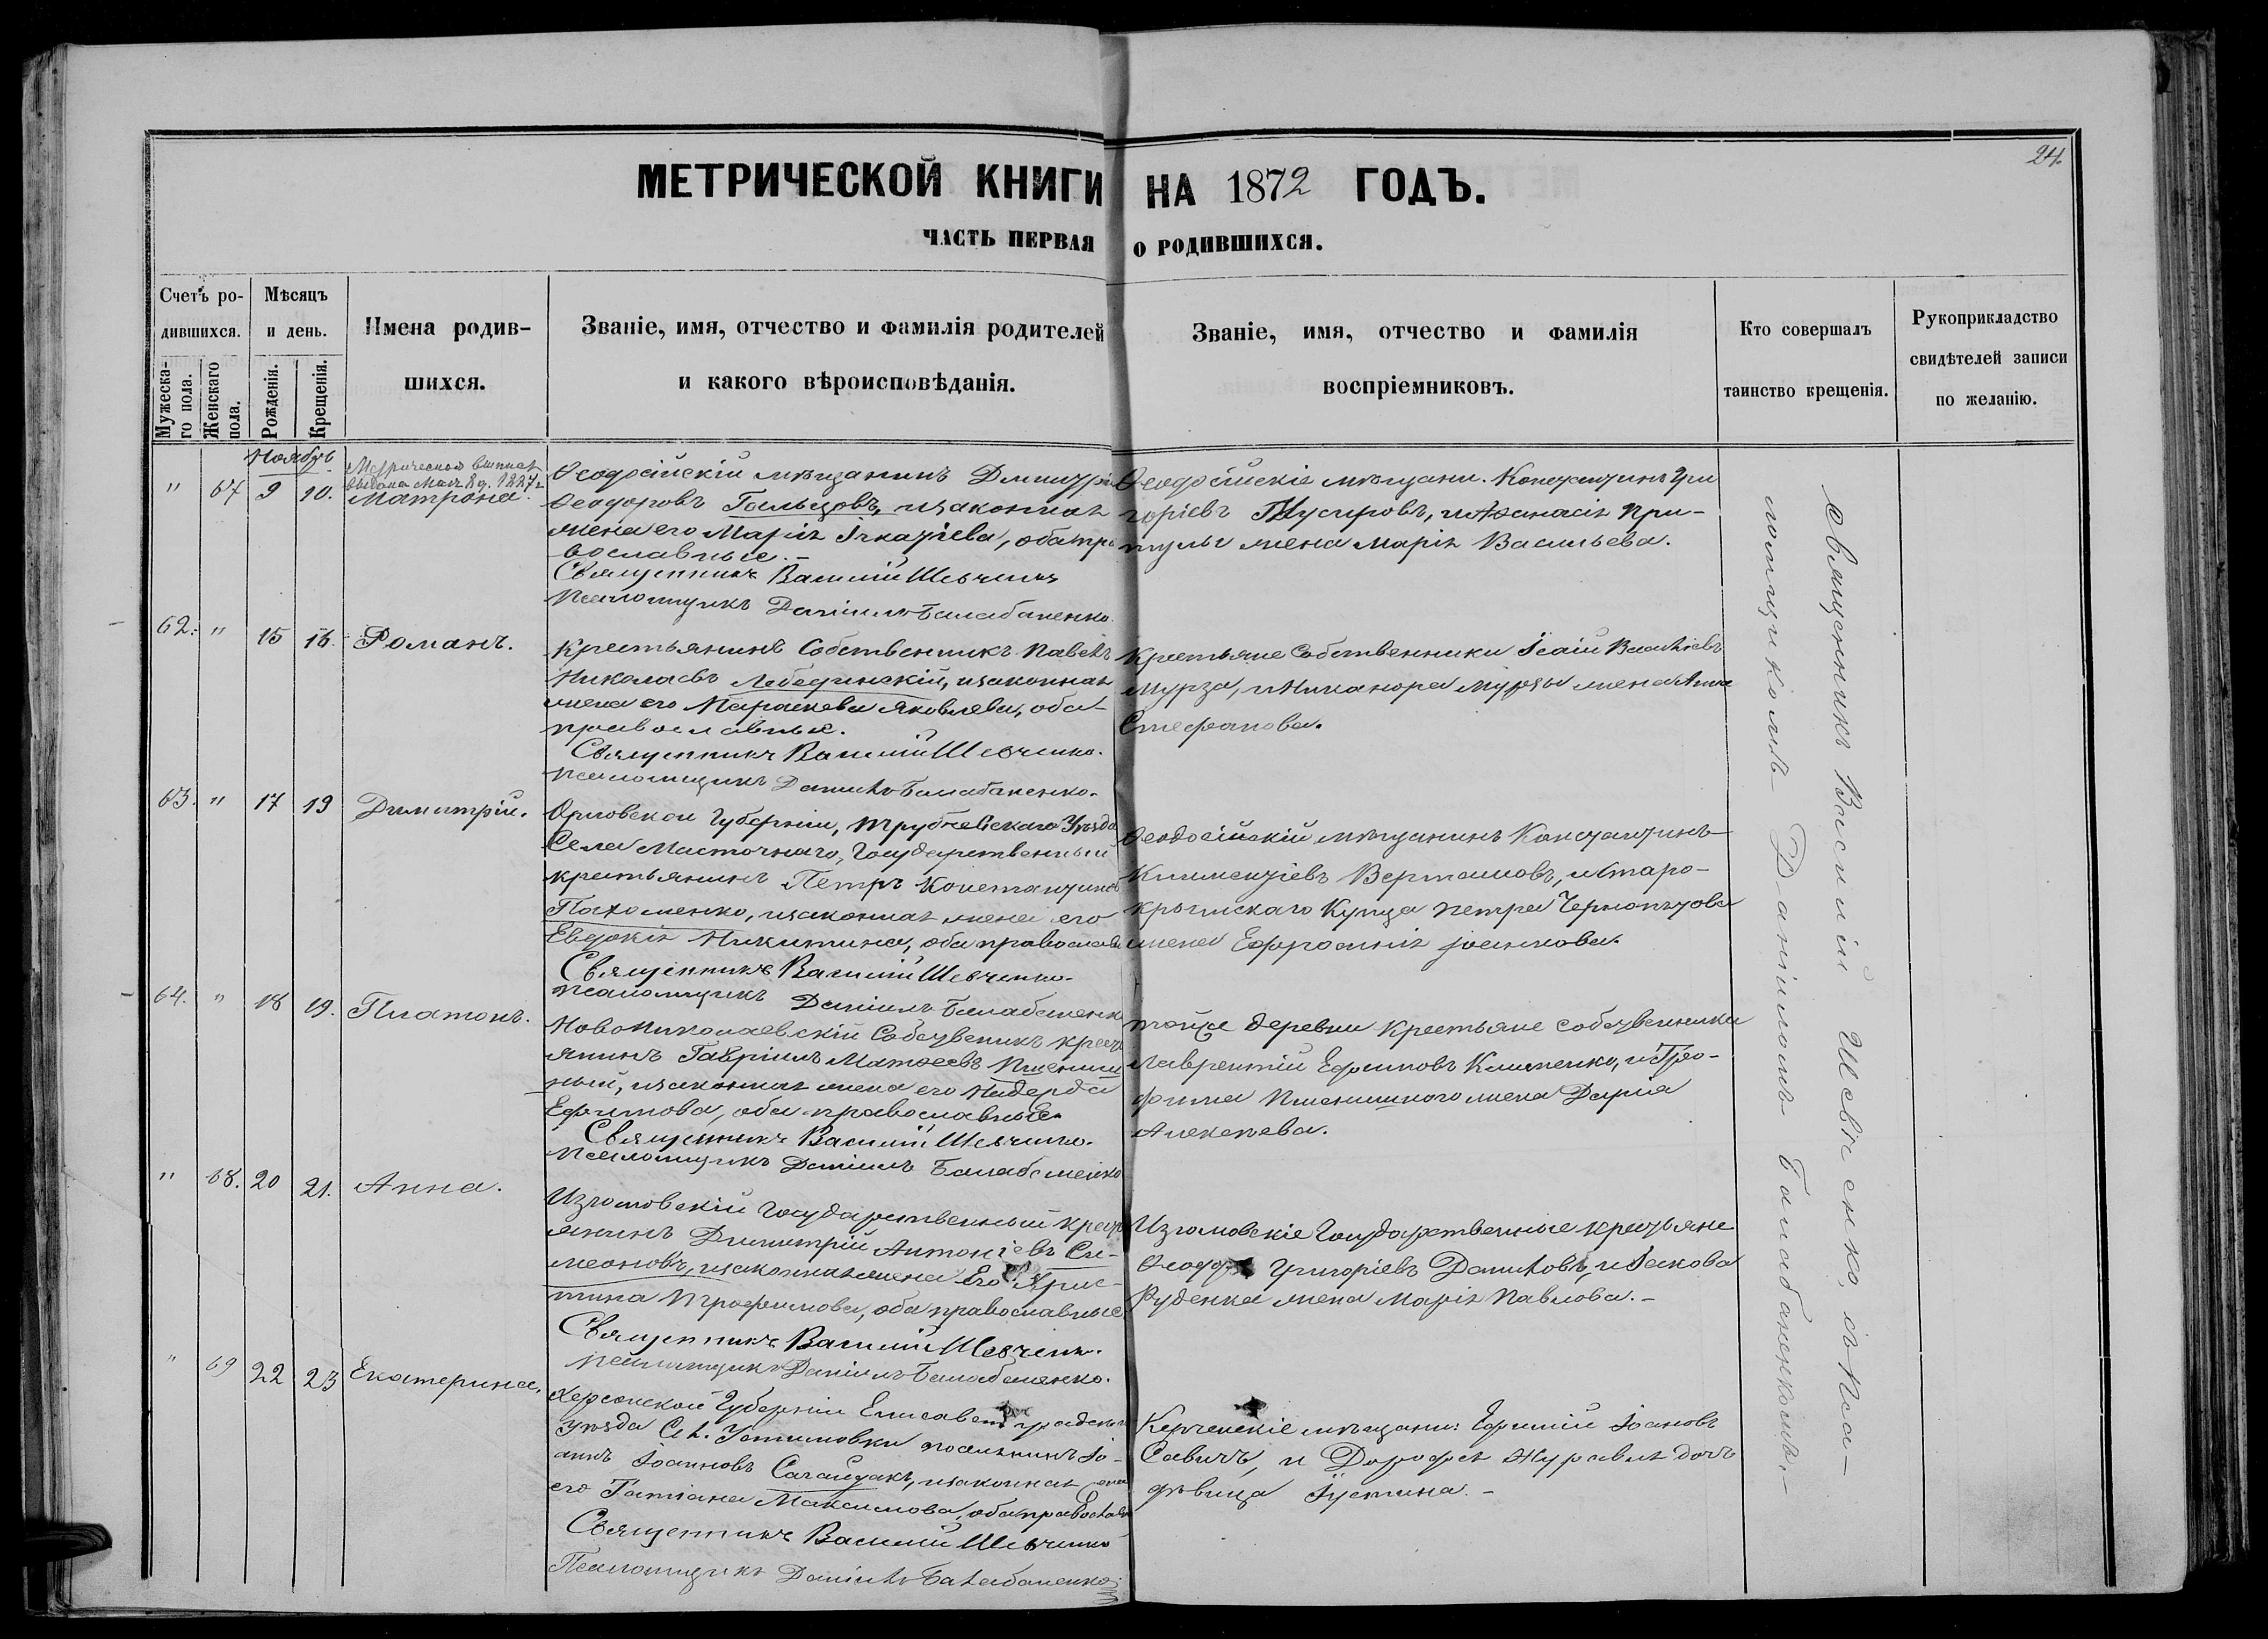 24.
МЕТРИЧЕСКОЙ КНИГИ НА 1872 ГОДЪ.
ЧАСТЬ ПЕРВАЯ О РОДИВШИХСЯ.
Счетъ ро-
дившихся.
Мужеска-
го пола.
Женскаго
пола.
Мѣсяцъ
и день.
Рожденія.
Крещенія.
Имена родив-
шихся.
Званіе, имя, отчество и фамилія родителей
и какого вѣроисповѣданія.
Званіе, имя, отчество и фамилія
воспріемниковъ.
Кто совершалъ
таинство крещенія.
Рукоприкладство
свидѣтелей записи
по желанію.
Ноябрь
" 67 9 10. Матрона.
Ѳеодосійскій мѣщанинъ Димитрій
Ѳеодоровъ Гольцовъ, и законная
жена его Марія Игнатіева, оба пра
вославные.-
Священникъ Василій Шевченко
Псаломщикъ Даніилъ Балабаненко.
Ѳеодосійскіе мѣщани. Константинъ Гри
горіевъ, и Аѳанасія При-
тулы жена Марія Васильева.
62. " 15 16. Романъ.
Крестьянинъ Собственникъ Павелъ
Николаевъ Лебединскій, и законная
жена его Параскева Яковлева, оба
православные.
Священникъ Василій Шевченко.
Псаломщикъ Даніилъ Балабаненко.
Крестьяне Собственники Ісаій Васильевъ
Мурза, и Никанора Мурзы жена Анна
Стефанова.
63. " 17 19 Димитрій.
Орловской Губерніи, Трубчевскаго Уѣзда
Села, Государственный
крестьянинъ Петръ Константиновъ
Пахоменко, и законная жена его
Евдокія Никитина, оба православн
Священникъ Василій Шевченко.
Псаломщикъ Даніилъ Балабаненко
Ѳеодосійскій мѣщанинъ Константинъ
Климентіевъ, и Старо-
крымскаго Купца Петра
жена Ефросинія
64. " 18 19. Платонъ.
Новониколаевскій Собственикъ крест
янинъ Гавріилъ Матѳеевъ Пшенич
ный, и законная жена его Надежда
Ефимова, оба православные.
Священникъ Василій Шевченко.
Псаломщикъ Даніилъ Балабаненко
тойже деревни Крестьяне собственники
Лаврентій Ефимовъ Клименко, и Тро-
фима Пшеничного жена Дарія
Алексѣева.
" 68. 20 21. Анна.
Изюмовскій Государственный крест
янинъ Димитрій Антоніевъ Си-
меоновъ, и законная жена Его Хрис-
тина Трофимова, оба православные
Священникъ Василій Шевченко.
Псаломщикъ Даніилъ Балабаненко.
Изюмовскіе Государственные крестьяне
Ѳеодоръ Григоріевъ Даниловъ, и Іакова
Руденка жена Марія Павлова.-
" 69 22 23 Екатерина.
Херсонской Губерніи Елисаветградскаго
Уѣзда Сел. Устимовки поселянинъ Іо-
аннъ Іоанновъ Сагайдакъ, и законная жена
его Татіана Максимова, оба православн
Священникъ Василій Шевченко
Псаломщикъ Даніилъ Балабаненко
Керченскіе мѣщани: Ефимій Іоановъ
Савичъ, и Дорофея Журавля дочь
дѣвица Іустина.-
Священникъ Василій Шевченко, съ Пса-
ломщикомъ Даніиломъ Балабаненкомъ.-